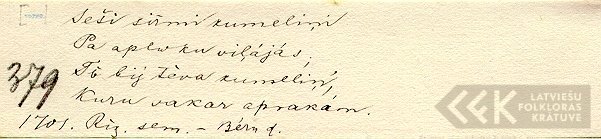 Seši sirmi kumeliņi
Pa aploku viļájás;
Tē bij tēva kumeliņi,
Kuru vakar aprakám.
379
1701. Rīg. sem. – Bērnd.
LATVIEŠU
FOLKLORAS
KRĀTUVE